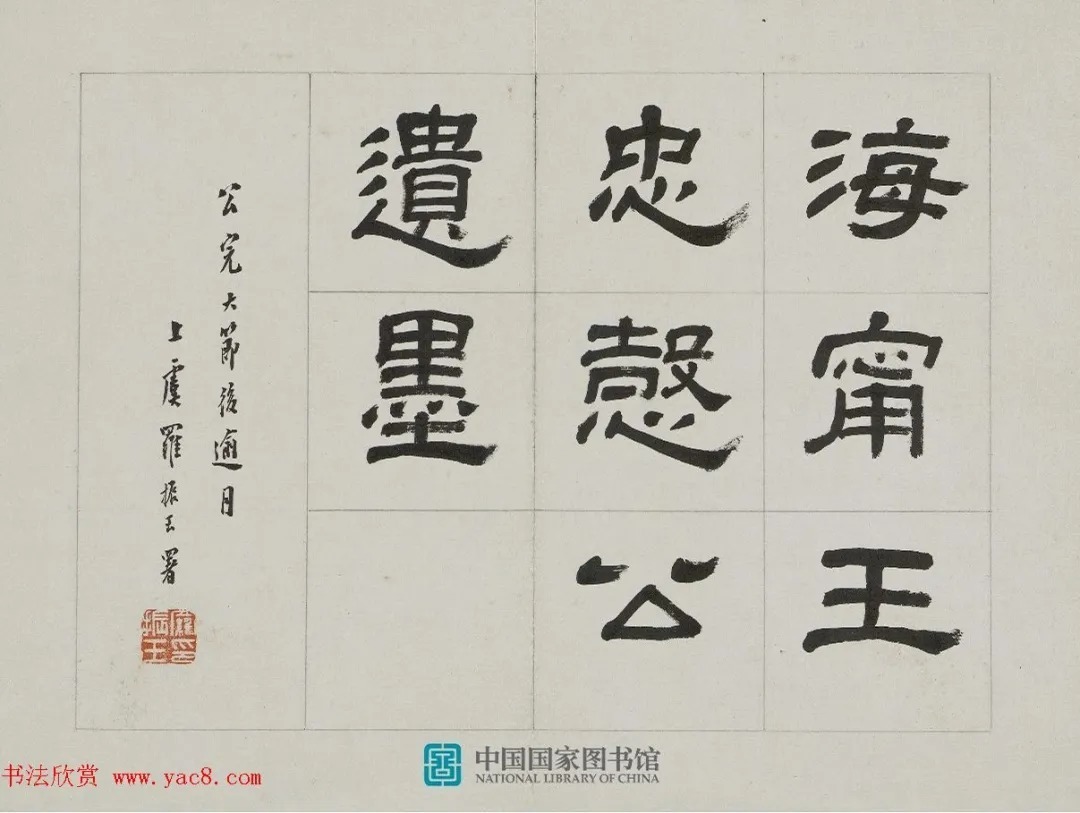 海甯王
忠慤公
遺墨
公完大節後逾月
上虞羅振玉署
羅振玉印
中国国家图书馆
NATIONAL LIBRARY OF CHINA
书法欣赏 www.yac8.com